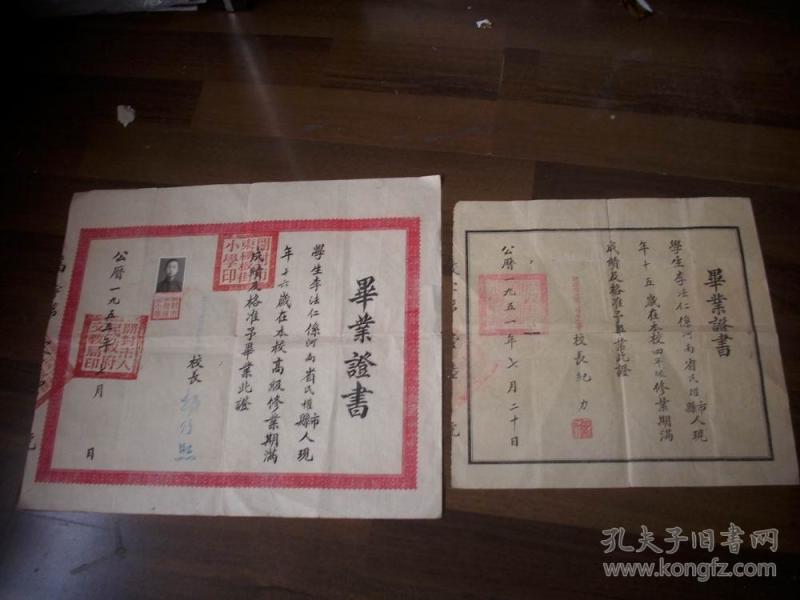 畢業證書
學生李法仁係河南省民權縣市人現
年十六歲在本校高級修業期滿
成績及格准予畢業此證
校長
公曆一九五五年七月 日
開封市人
民政府
文教局印
小學印
畢業證書
學生李法仁係河南省民權縣市人現
年十五歲在本校四年級修業期滿
成績及格准予畢業此證
校長紀力
公曆一九五一年七月二十日
孔夫子旧书网
www.kongfz.com